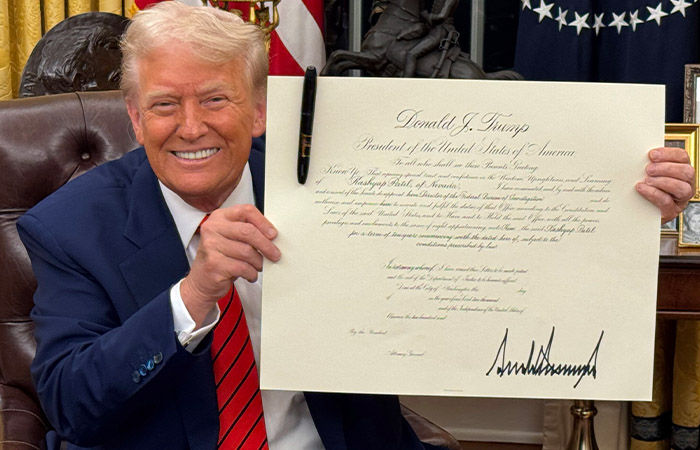 Donald J. Trump
President of the United States of America
To all who shall see these Presents Greeting
Know Ye: That reposing special trust and confidence in the Wisdom, Uprightness, and Learning
of Kashyap Patel, of Nevada, I have nominated, and by and with the advice
and consent of the Senate to appoint him Director of the Federal Bureau of Investigation and do
authorize and empower him to execute and fulfill the duties of that Office according to the Constitution and
Laws of the said United States, and to Have and to Hold the said Office, with all the powers,
privileges and emoluments to the same of right appertaining, unto Him, the said Kashyap Patel
for a term of ten years commencing with the date hereof, subject to the
conditions prescribed by law.
In testimony whereof, I have caused these Letters to be made patent
and the seal of the Department of Justice to be hereunto affixed.
Done at the City of Washington this day
of in the year of our Lord two thousand
and of the Independence of the United States of
America the two hundred and
By the President
Attorney General